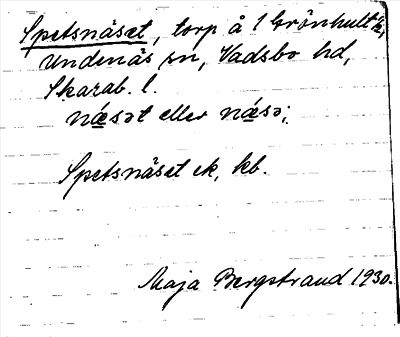 Spetsnäset, torp å 1 Grönhult
Undenäs sn, Vadsbo hd,
Skarab. l.
næsət eller næsə;
Spetsnäset ek, kb.
Maja Bergstrand 1930.